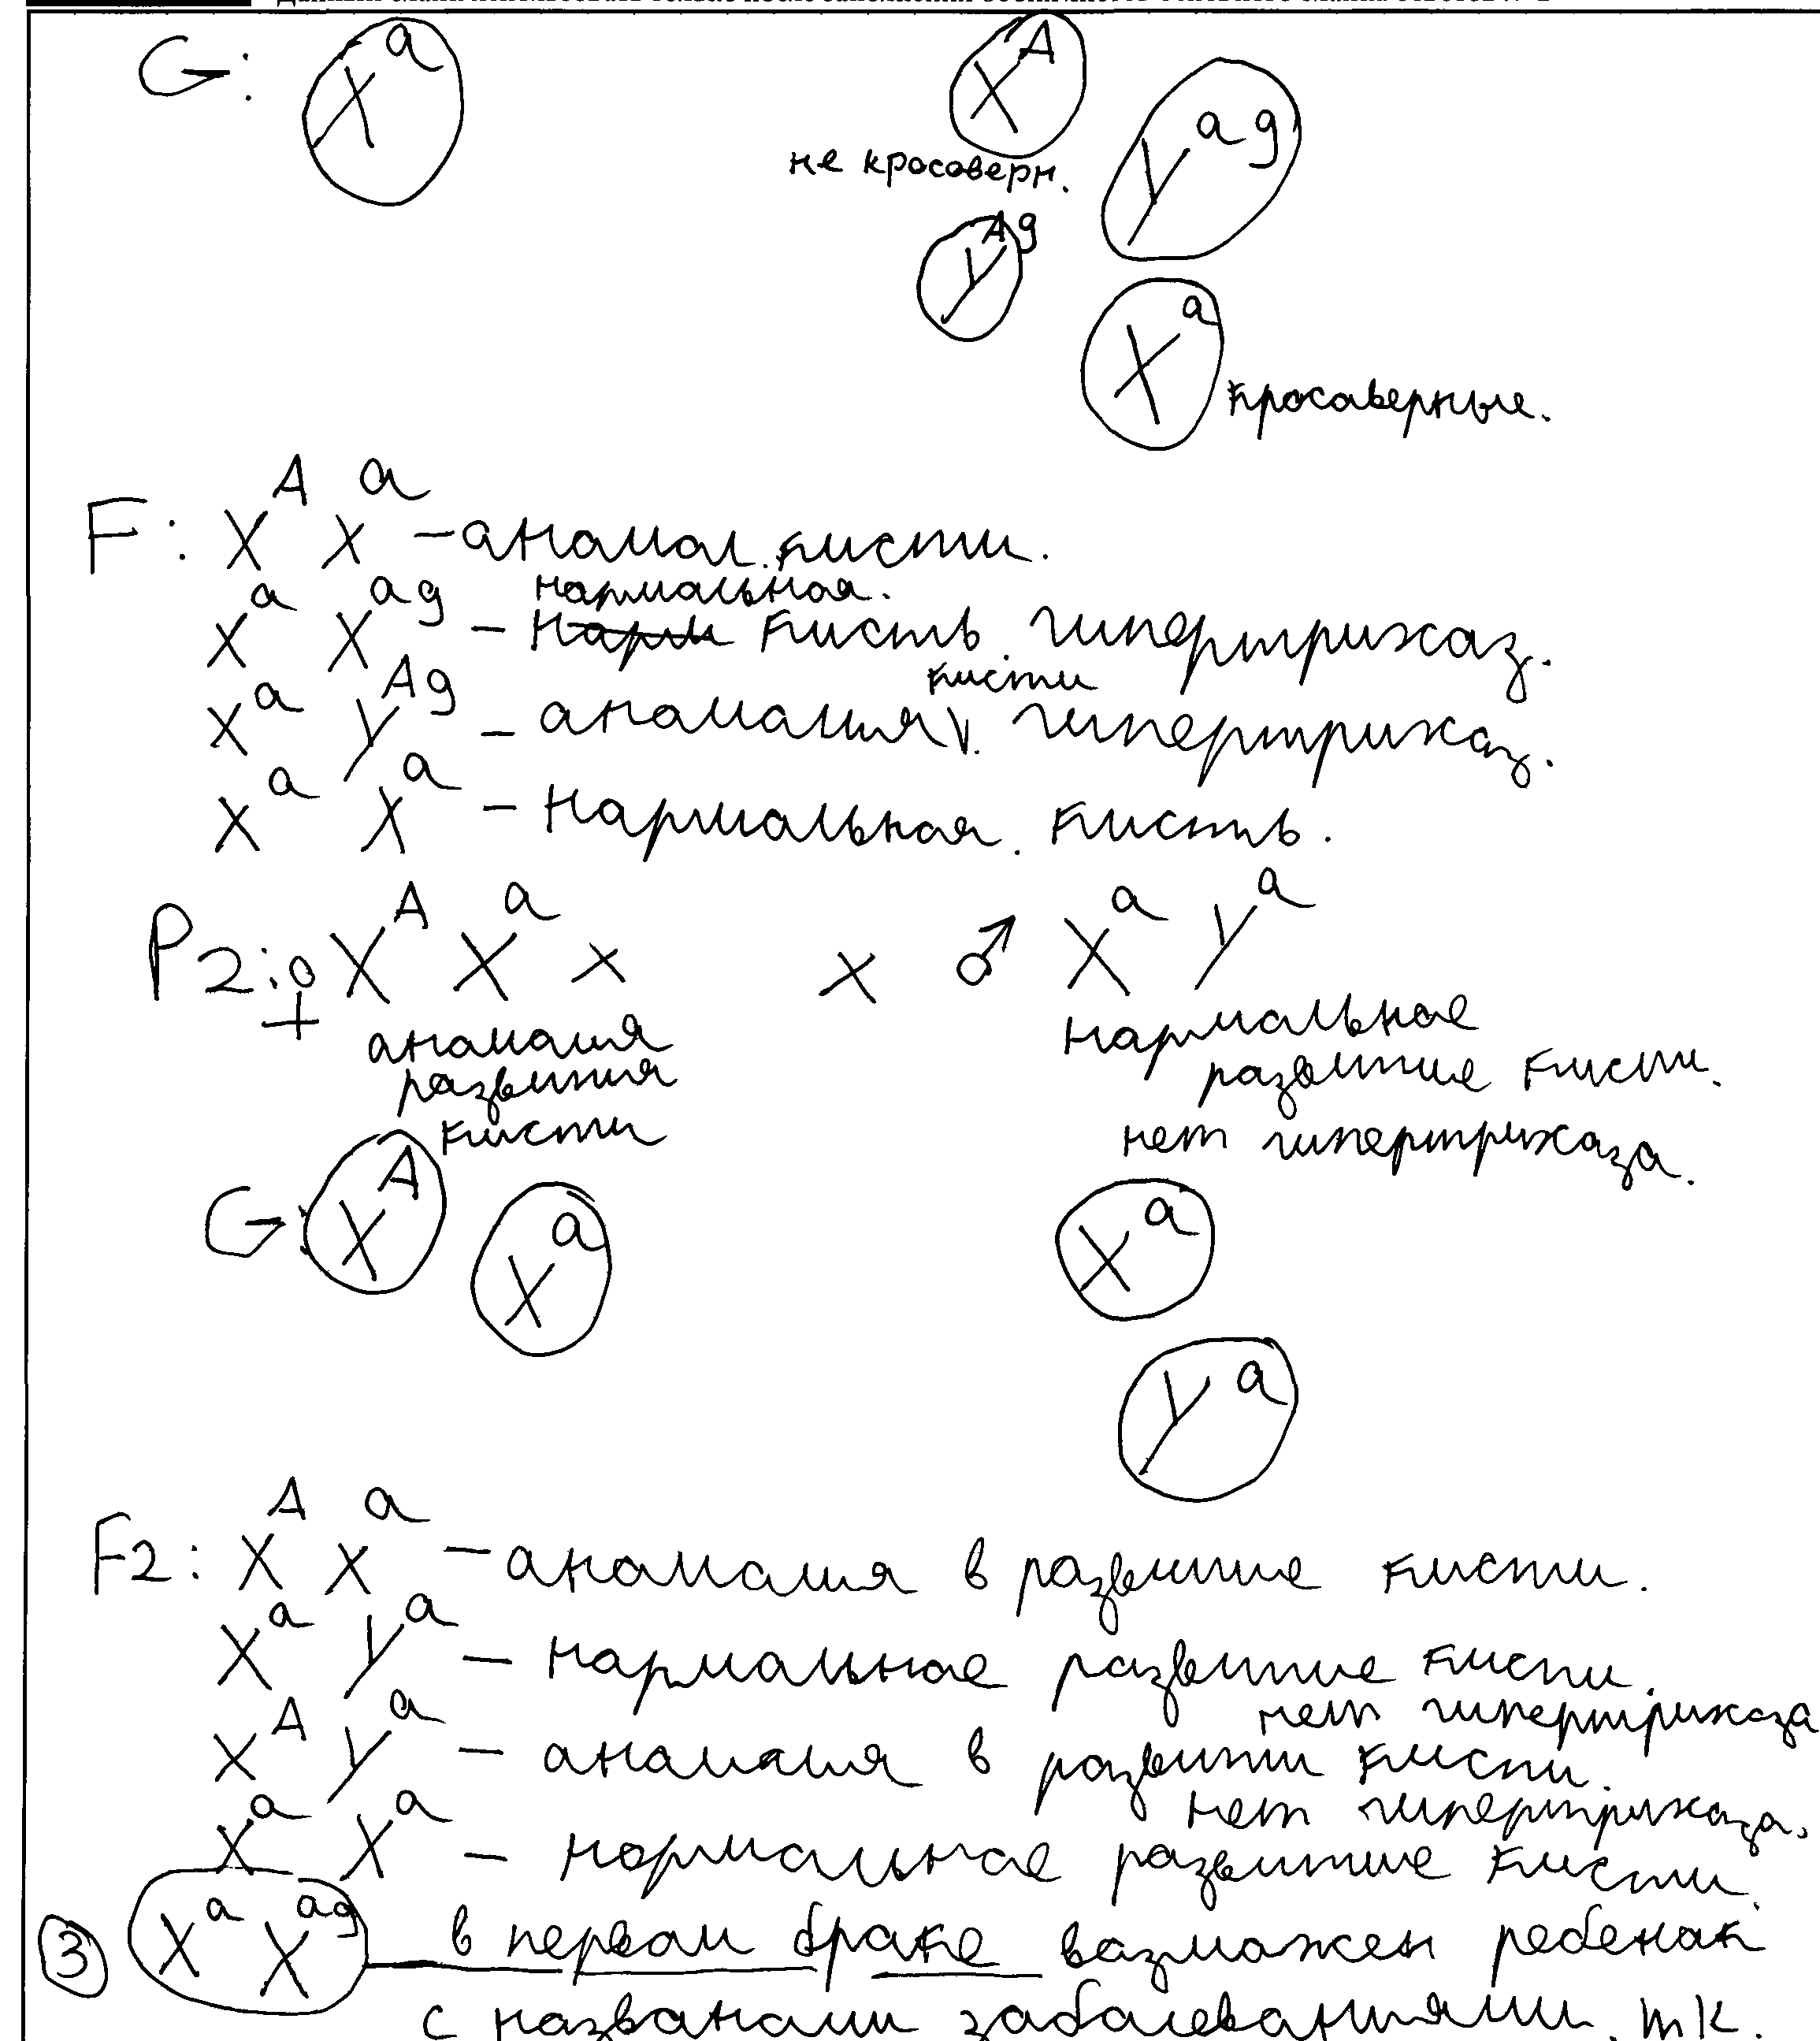 G: X^a X^A
не кросоверн. Y^ag
Y^Ag
X^a кросаверные.
F: X^A X^a – аномал. кисти.
нормальная.
X^a X^ag – нарм кисть. гипертрихаз.
кисти
X^a Y^Ag – аномалия V. гипертрихаз.
X^a X^a – нормальная. кисть.
P2: ♀ X^A X^a x x ♂ X^a Y^a
аномалия нормальное
развития развитие кисти.
кисти нет гипертрихаза.
G: X^A X^a X^a
Y^a
F2: X^A X^a – аномалия в развитие кисти.
X^a Y^a – нормальное развитие кисти.
нет гипертрихаза
X^A Y^a – аномалия в развити кисти.
нет гипертрихаза.
X^a X^a – нормальное развитие кисти.
③ X^a X^ag в первом браке возможен ребенок
с названами заболеваниями, тк.